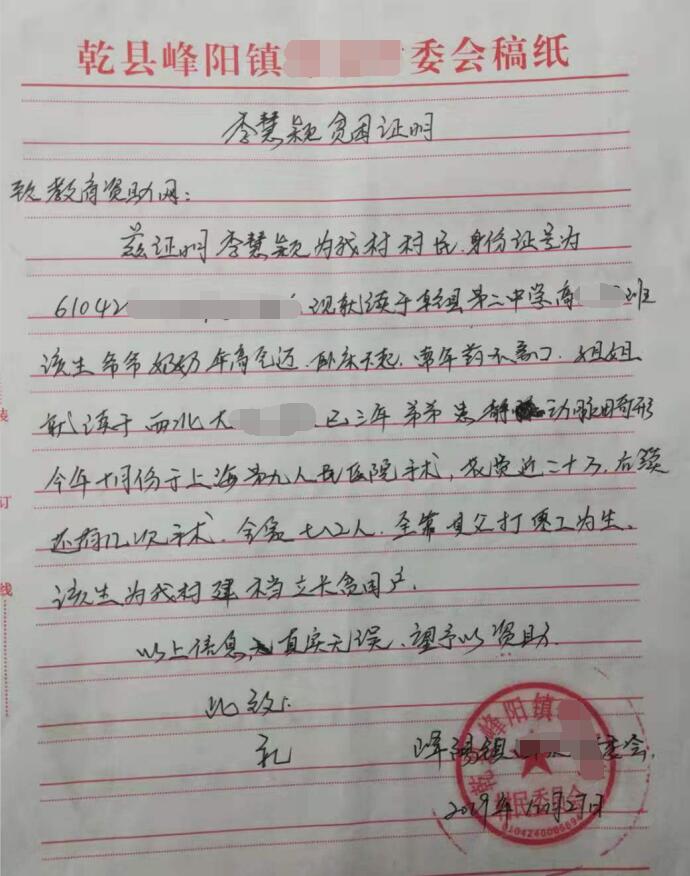 乾县峰阳镇 委会稿纸
李慧颖贫困证明
软教商资助网:
兹证明李慧颖为我村村民,身份证号为
61042 现就读于乾县第二中学高 班
该生爷爷奶奶年高气迈.卧床不起,常年药不离口.姐姐
就读于西北大 已三年弟弟患静动脉畸形
今年十月份于上海第九人民医院手术,花费近二十万,后续
还有几次手术.全家七口人.全靠其父打零工为生.
该生为我村建档立卡贫困户.
以上信息真实无误,望予以资助.
此致
礼
峰阳镇 委会
2019年 月27日
乾 峰阳镇
村民委员会
装
订
线